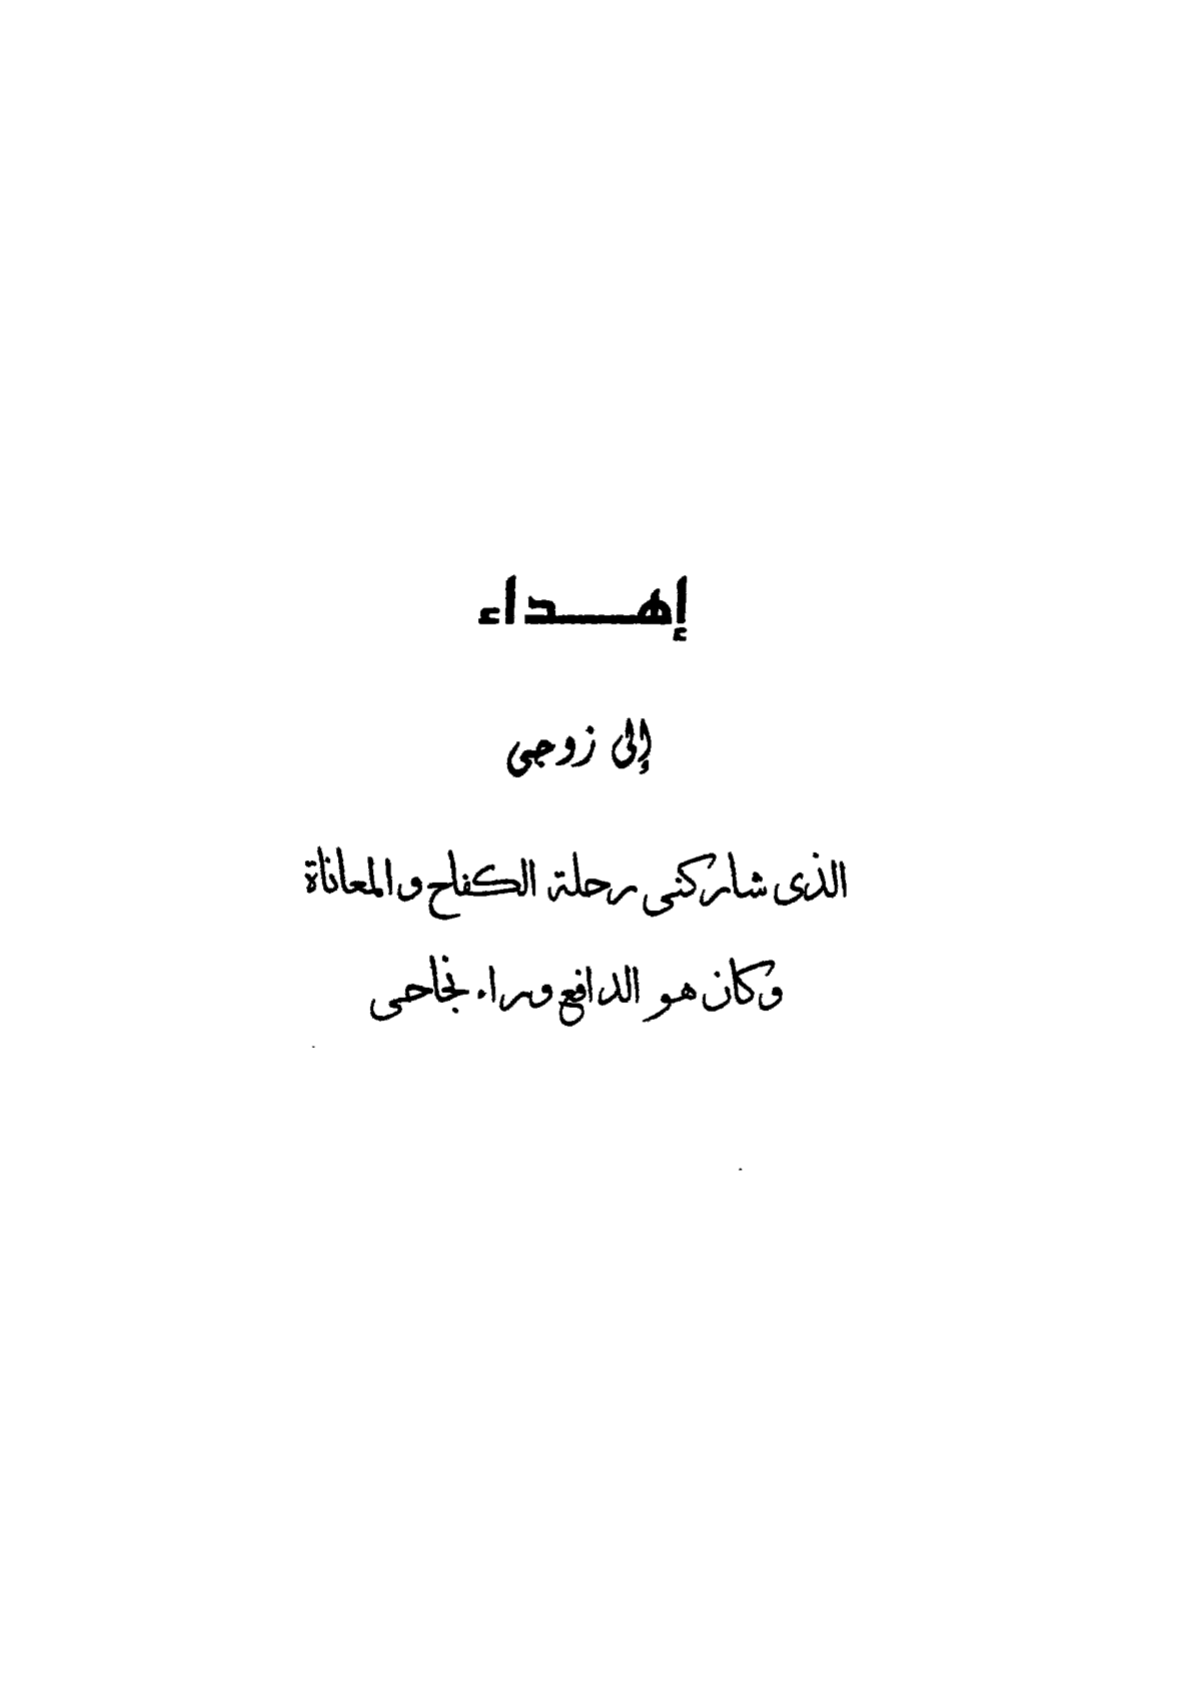 إهـــداء
إلى زوجى
الذى شاركنى رحلة الكفاح والمعاناة
وكان هو الدافع وراء نجاحى